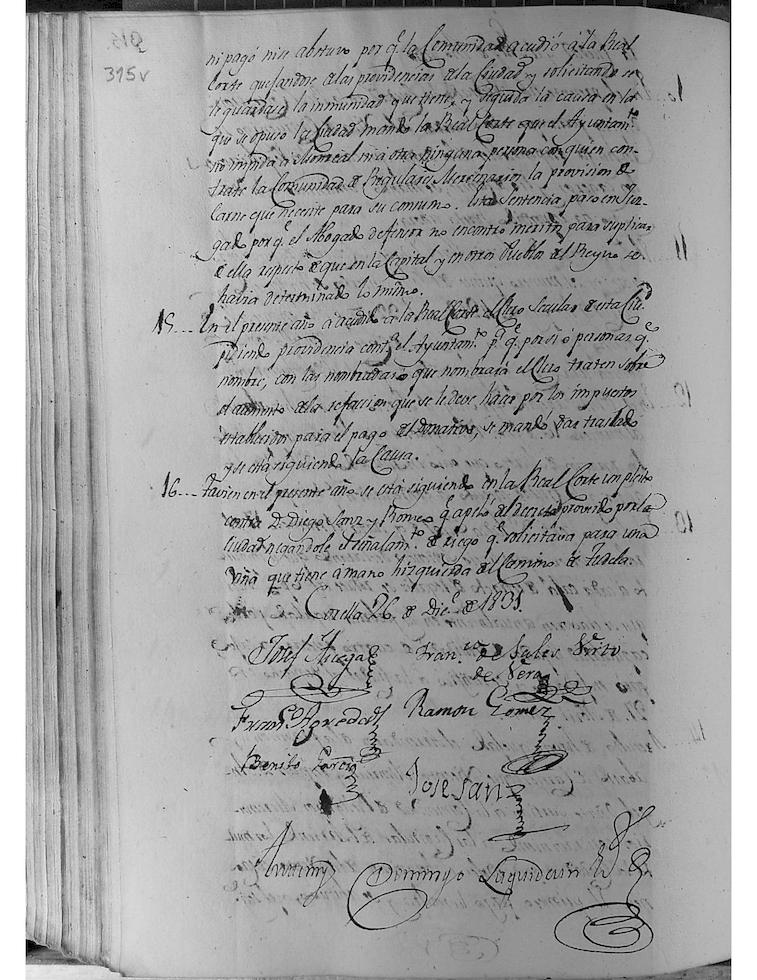 315v
ni pagó ni se abstuvo por q.e la Comunidad acudió á la Real
Corte quejandose de las providencias de la Ciudad y solicitando se
le guardase la inmunidad que tiene, y seguida la causa en la
que se opuso la Ciudad mandó la Real Corte que el Ayuntam.to
no impida á Monreal ni á otra ninguna persona con quien con-
trate la Comunidad de Regulares Mercenarios la provision de
Carne que necesite para su consumo. Esta Sentencia pasó en Juz-
gado por q.e el Abogado defensor no encontró meritos para suplicar
de ella respecto de que en la Capital y en otros Pueblos del Reyno se
havia determinado lo mismo.
15... En el presente año á acudido á la Real Corte el Clero Secular de esta Ciu.d
pidiendo providencia cont.a el Ayuntam.to p.a q.e por si ó personas q.e
nombre, con las nombradas ó que nombrará el Clero traten sobre
el aumento de la refacion que se le deve hacer por los impuestos
establecidos para el pago del Donativo, se mandó dar traslado
y se está siguiendo la Causa.
16... Tavien en el presente año se está siguiendo en la Real Corte un pleito
contra D. Diego Sanz y Romeo q.e apeló del decreto proveido por la
Ciudad negandole el señalam.to de riego q.e solicitava para una
viña que tiene á mano hizquierda del Camino de Tudela.
Corella 26 de Dic.e de 1831.
Josef Fran.co de Sales Virto
de Vera
Fran.co Agreda Ramon Gomez
Benito Garcia
Jose Sanz
Domingo Laquidain